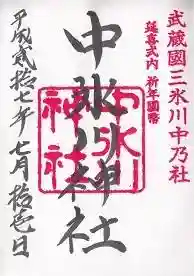 武蔵國三氷川中乃社
延喜式内 祈年國幣
中氷川神社
中氷川
神社
平成貳拾七年七月拾壱日